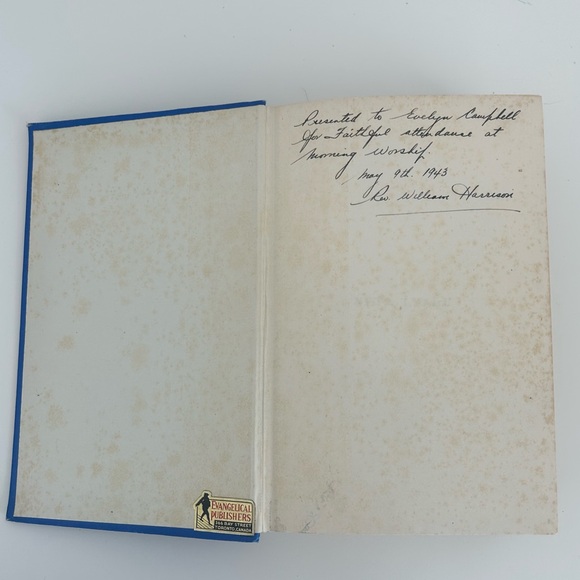 Presented to Evelyn Campbell
for Faithful attendance at
Morning Worship.
May 9th. 1943
Rev. William Harrison
EVANGELICAL
PUBLISHERS
366 BAY STREET
TORONTO, CANADA